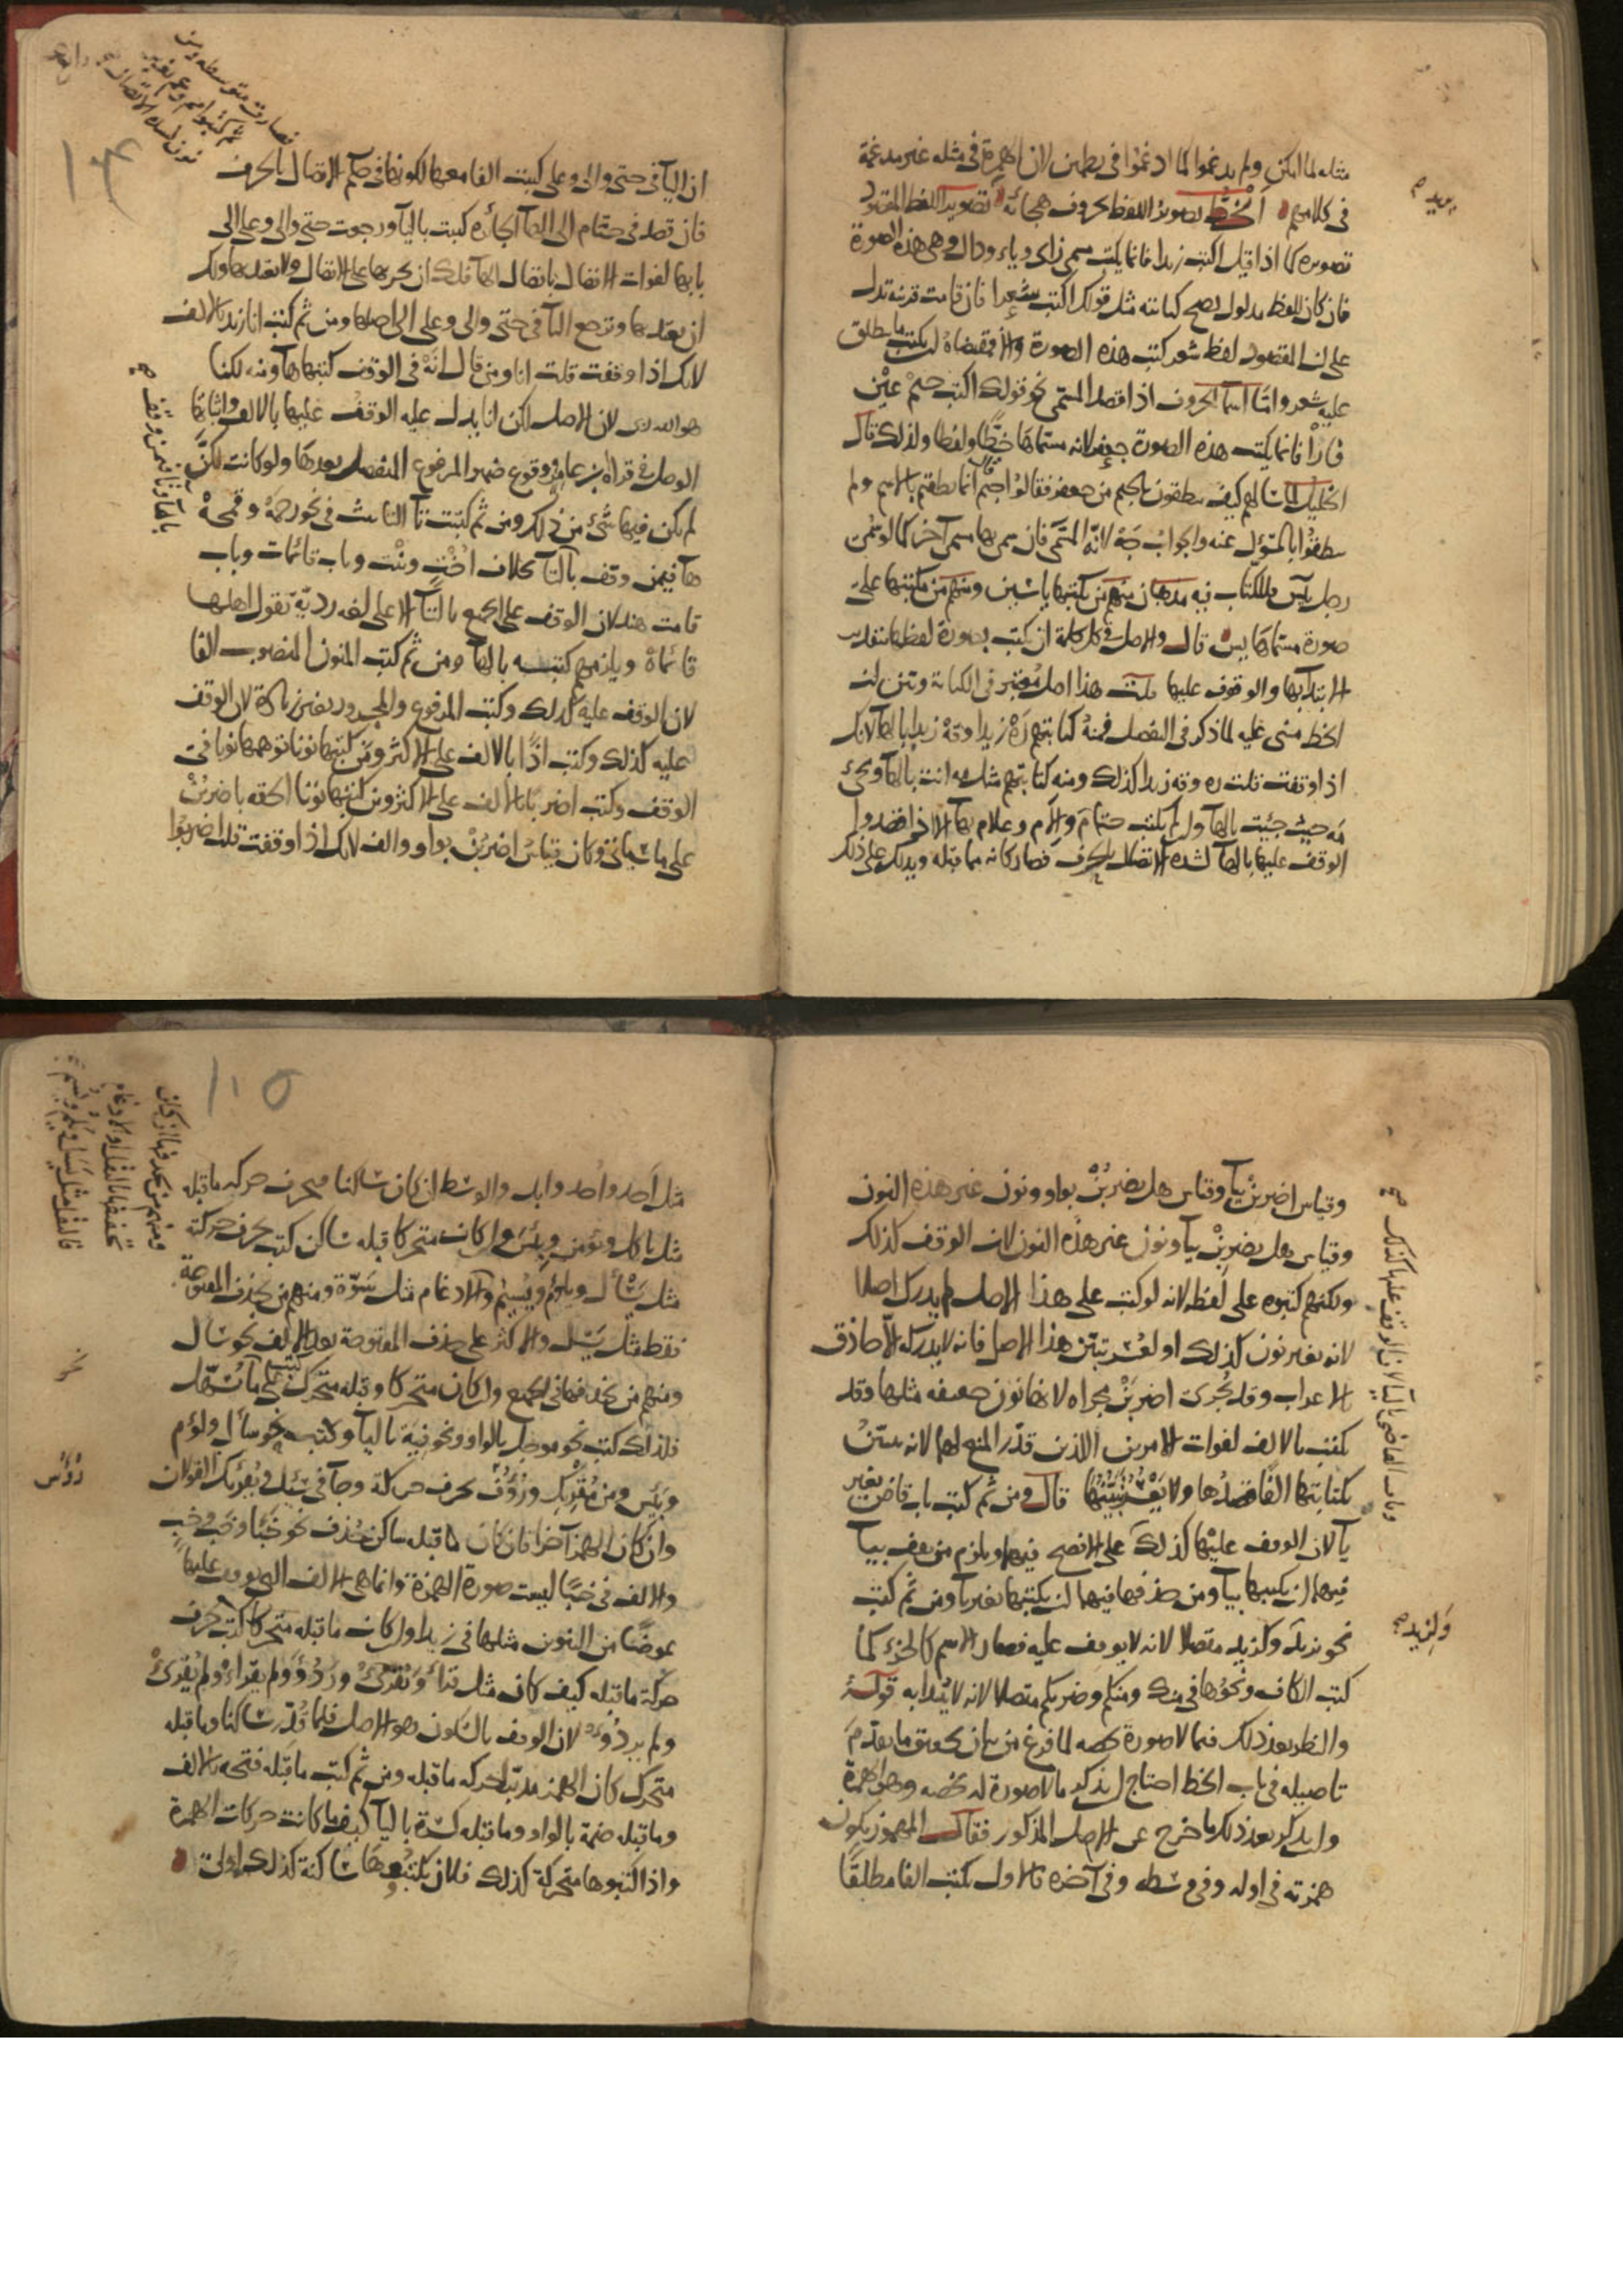 مثله لما امكن ولم يدغموا لما ادغموا في يطمئن لان الهمزة في مثله غير مدغمة
في كلامهم الخط تصوير اللفظ بحروف هجائه تصوير اللفظ المقصود
تصويره كما اذا قيل اكتب زيدا فانما يكتب مسمى زاى وياء ودال وهى هذه الصورة
فان كان للفظ مدلول يصح كتابته مثل قولك اكتب شعرا فان قامت قرينه تدل
على ان المقصود لفظ شعر كتب هذه الصورة والا فمقتضاه ان يكتب ما ينطلق
عليه شعر واما اسما الحروف اذا قصد المسمى نحو قولك اكتب جيم عين
فا را فانما يكتب هذه الصورة جعفر لانه مسماها خطا ولفظا ولذلك قال
الخليل لما سالهم كيف تنطقون بالجيم من جعفر فقالوا جيم قال انما نطقتم بالاسم ولم
تنطقوا بالمسؤل عنه والجواب جه لانه المسمى فان سمى بها مسمى آخر كما لو سمى
رجل بيس فللكتاب فيه مذهبان منهم من يكتبها ياسين ومنهم من يكتبها على
صورة مسماها يس قال والاصل في كل كلمة ان تكتب بصورة لفظها بتقدير
الابتدا بها والوقوف عليها قلت هذا اصل معتبر في الكتابة وتبين لك
الخط مبنى عليه لما ذكر في التفصيل فمنه كتابتهم ره زيدا وقه زيدا بالها لانك
اذا وقفت قلت ره وقه زيدا كذلك ومنه كتابتهم مثل مه انت بالها ومجئ
مه جئت بالها ولم يكتب حتام والام وعلام بها الا اذا قصدوا
الوقف عليها بالها لشدة الاتصال بالحرف فصار كانه مما قبله ويدلك على ذلك
ان اليا في حتى والى وعلى كتبت الفا معها لكونها في حكم الاتصال بالحرف
فان قصد في حتام الى الها الجائزه كتبت باليا ورجعت حتى والى وعلى الى
بابها لفوات الاتصال باتصال الها فلك ان تجريها على الاتصال ولا تعتد بها ولك
ان تعتد بها وترجع اليا في حتى والى وعلى الى اصلها ومن ثم كتب انا زيد بالالف
لانك اذا وقفت قلت انا ومن قال انه في الوقف كتبها ها ومنه لكنا
هو الله ربى لان الاصل لكن انا يدل عليه الوقف عليها بالالف واثباتها
الوصل في قراة ابن عامر ووقوع ضمير المرفوع المنفصل بعدها ولو كانت لكن
لم يكن فيها شئ من ذلك ومن ثم كتبت تا التانيث في نحو رحمة وقمحة
ها فيمن وقف بالتا بخلاف اخت وبنت وباب قائمات وباب
قامت هند لان الوقف على الجمع بالتا الا على لغه رديه يقول اهلها
قائماه ويلزمهم كتبه بالها ومن ثم كتب المنون المنصوب الفا
لان الوقف عليه كذلك وكتب المرفوع والمجرور بغير زيادة لان الوقف
عليه كذلك وكتب اذا بالالف على الاكثر ومن كتبها نونا توهمها نونا في
الوقف وكتب اضربا بالالف على الاكثر ومن كتبها نونا الحقه باضربن
على ما سياتى وكان قياس اضربن بواو والف لانك اذا وقفت قلت اضربوا
١٠٤
وقياس اضربن بيا وقياس هل يضربن بواو ونون غير هذه النون
وقياس هل تضربن بيا ونون غير هذه النون لان الوقف كذلك
ولكنهم كتبوه على لفظه لانه لو كتب على هذا الاصل لم يدرك اصلا
لانه بغير نون كذلك او لعسر تبين هذا الاصل فانه لا يدركه الا حاذق
الاعراب وقد تجرى اضربن مجراه لانها نون خفيفه مثلها وقد
يكتب بالالف لفوات الامرين اللذين قدر المنع لهما لانه يتبين
بكتابتها الفا قصدها ولا يعسر تبينها قال ومن ثم كتب باب قاض بغير
يا لان الوقف عليها كذلك على الافصح فيهما ويلزم من يقف بيا
فيهما ان يكتبها بيا ومن حذفها فيهما ان يكتبها بغير يا ومن ثم كتب
نحو بزيد وكزيد متصلا لانه لا يوقف عليه فصار الاسم كالجزء كما
كتب الكاف ونحوها في منك ومنكم وضربكم متصلا لانه لا يبتدا به قوله
والنظر بعد ذلك فيما لا صورة تخصه لما فرغ من بيان تحقيق ما تقدم
تاصيله في باب الخط احتاج ان يذكر ما لا صورة له تخصه وهو الهمزة
وان يذكر بعد ذلك ما خرج عن الاصل المذكور فقال المهموز يكون
همزته في اوله وفي وسطه وفي آخره فالاول يكتب الفا مطلقا
وكزيد
١٠٥
مثل احد واحد وابد والوسط ان كان ساكنا فبحرف حركه ما قبله
مثل ياكل ويؤمن وبئس وان كانت متحركا قبله ساكن كتب بحرف حركته
مثل يسأل ويلؤم ويسئم والادغام مثل سوة ومنهم من يحذف المفتوحة
فقط مثل يسل والاكثر على حذف المفتوحة بعد الالف نحو سال
ومنهم من يحذفها في الجميع وان كان متحركا وقبله متحرك كتب على ما يسهل
فلذلك كتب نحو موجل بالواو ونحو فية باليا وكتب نحو سأل ولؤم
وبئس ومن مقرئك ورؤف بحرف حركته وجا في سئل ويقرئك القولان
وان كان الهمز آخرا فان كان ما قبله ساكن حذف نحو خبا وخب وخب
والالف في خبا ليست صورة الهمزة وانما هى الالف التى يوقف عليها
عوضا من التنوين مثلها في زيدا وان كان ما قبله متحركا كتب بحرف
حركة ما قبله كيف كان مثل قرأ ويقرئ وردؤ ولم يقرأ ولم يقرئ
ولم يردؤ لان الوقف بالسكون وهو الاصل فلما قدر ساكنا وما قبله
متحرك كان الهمز مدبرا بحركه ما قبله ومن ثم كتب ما قبله فتحه بالالف
وما قبله ضمة بالواو وما قبله كسرة باليا كيف ما كانت حركات الهمزة
واذا كتبوها متحركة كذلك فلان يكتبوها ساكنة كذلك اولى
رؤس